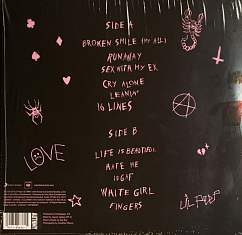 SIDE A
BROKEN SMILE (MY ALL)
RUNAWAY
SEX WITH MY EX
CRY ALONE
LEANIN'
16 LINES
SIDE B
LOVE
LIFE IS BEAUTIFUL
HATE ME
IDGAF
WHITE GIRL
FINGERS
LiL PEEP